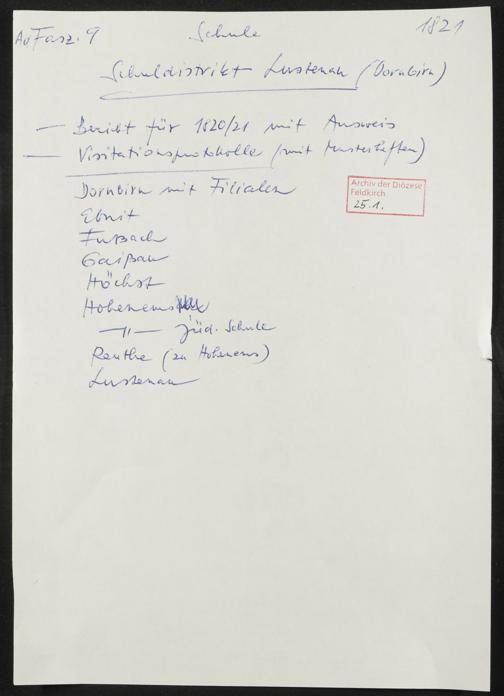 Au Fasz. 9
Schule
1821
Schuldistrikt Lustenau (Dornbirn)
— Bericht für 1820/21 mit Ausweis
— Visitationsprotokolle (mit Musterheften)
Dornbirn mit Filialen
Ebnit
Fußach
Gaißau
Höchst
Hohenems
—"— jüd. Schule
Reuthe (zu Hohenems)
Lustenau
Archiv der Diözese
Feldkirch
25.1.